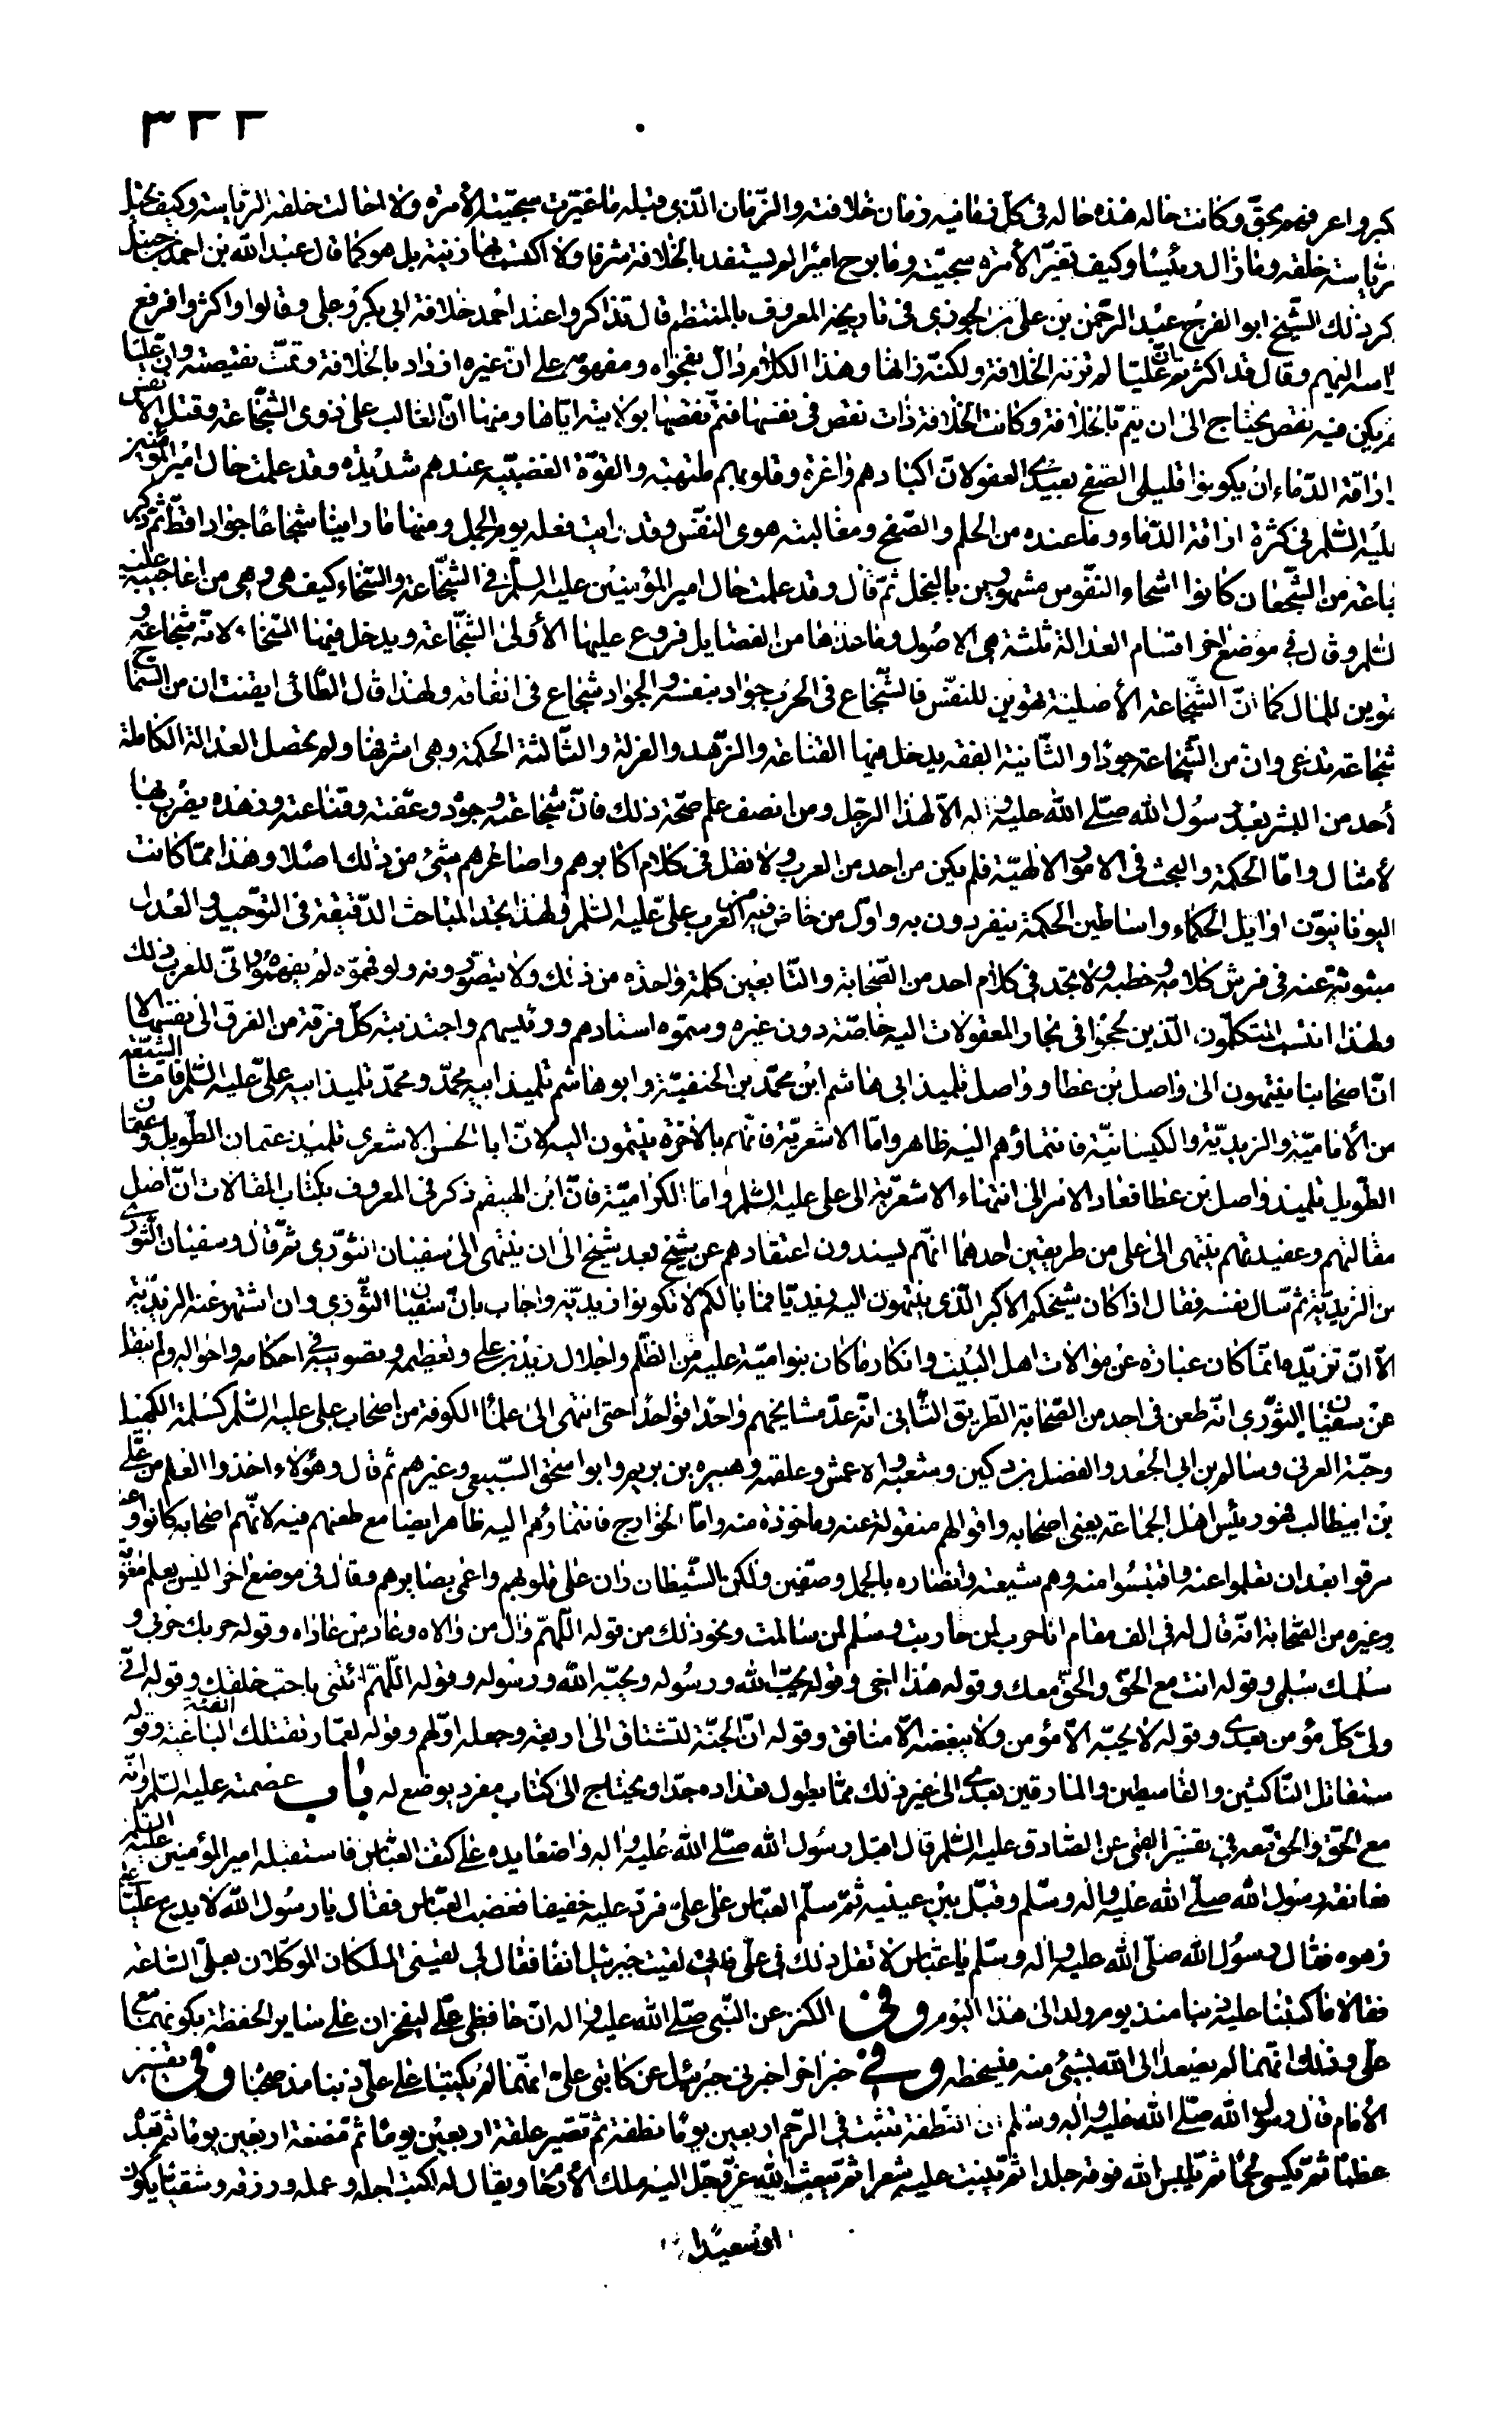 ٣٢٢
كبروا عرفهم بحق وكانت حاله هذه حاله فى كل زمانيه زمان خلافته والزمان الذى قبله ما غيرت سجيته الأمرة ولا احالت خلقه الرياسة وكيف تحيل
الرياسة خلقه وما زال رئيسا وكيف تغير الأمرة سجيته وما برح اميرا لم يستفد بالخلافة شرفا ولا اكتسب بها زينة بل هو كما قال عبد الله بن احمد بن حنبل
ذكر ذلك الشيخ ابو الفرج عبد الرحمن بن على بن الجوزى فى تاريخه المعروف بالمنتظم قال تذاكروا عند احمد خلافة ابى بكر وعلى وقالوا واكثروا فرفع
راسه اليهم وقال قد اكثرتم ان عليا لم تزنه الخلافة ولكنه زانها وهذا الكلام دال بفحواه ومفهومه على ان غيره ازداد بالخلافة وتمت نقيصته وان عليا
لم يكن فيه نقص يحتاج الى ان يتم بالخلافة وكانت الخلافة ذات نقص فى نفسها فتم نقصها بولايته اياها ومنها ان الغالب على ذوى الشجاعة وقتل الأنفس
واراقة الدماء ان يكونوا قليلى الصفح بعيدى العفو لان اكبادهم واغرة وقلوبهم ملتهبة والقوة الغضبية عندهم شديدة وقد علمت حال امير المؤمنين
عليه السلم فى كثرة اراقة الدماء وما عنده من الحلم والصفح ومغالبته هوى النفس وقد رايت فعله يوم الجمل ومنها ما راينا شجاعا جوادا قط ثم ذكر
جماعة من الشجعان كانوا اشحاء النفوس مشهورين بالبخل ثم قال وقد علمت حال امير المؤمنين عليه السلم فى الشجاعة والسخاء كيف هى وهى من اعاجيبه عليه
السلم وقال فى موضع اخر اقسام العدالة ثلثة هى الاصول وما عداها من الفضايل فروع عليها الأولى الشجاعة ويدخل فيها السخاء لانه شجاعة و
تهوين للمال كما ان الشجاعة الأصلية تهوين للنفس فالشجاع فى الحرب جواد بنفسه والجواد شجاع فى انفاقه ولهذا قال الطائى ايقنت ان من السماح
شجاعة تدعى وان من الشجاعة جودا والثانية الفقه يدخل فيها القناعة والزهد والعزلة والثالثة الحكمة وهى اشرفها ولم تحصل العدالة الكاملة
لأحد من البشر بعد رسول الله صلى الله عليه واله الا لهذا الرجل ومن انصف علم صحة ذلك فان شجاعته وجوده وعفته وقناعته وزهده يضرب بها
الأمثال واما الحكمة والبحث فى الامور الالهية فلم يكن من احد من العرب ولا نقل فى كلام اكابرهم واصاغرهم شىء من ذلك اصلا وهذا مما كانت
اليونانيون اوايل الحكماء واساطين الحكمة ينفردون به واول من خاض فيه من العرب على عليه السلم ولهذا تجد المباحث الدقيقة فى التوحيد والعدل
مبثوثة عنه فى فرش كلامه وخطبه ولا تجد فى كلام احد من الصحابة والتابعين كلمة واحدة من ذلك ولا يتصورونه ولو فهموه لم يفهموه وانى للعرب ذلك
ولهذا انتسب المتكلمون الذين لججوا فى بحار المعقولات اليه خاصة دون غيره وسموه استادهم ورئيسهم واجتذبته كل فرقة من الفرق الى نفسها الا
ان اصحابنا ينتمون الى واصل بن عطا وواصل تلميذ ابى هاشم ابن محمد بن الحنفية وابو هاشم تلميذ ابيه محمد ومحمد تلميذ ابيه على عليه السلم فاما الشيعة
من الأمامية والزيدية والكيسانية فانتماؤهم اليه ظاهر واما الاشعرية فانهم بالاخرة ينتمون اليه لان ابا الحسن الاشعرى تلميذ عثمان الطويل وعثمان
الطويل تلميذ واصل بن عطا فعاد الامر الى انتهاء الاشعرية الى على عليه السلم واما الكرامية فان ابن الهيصم ذكر فى المعروف بكتاب المقالات ان اصل
مقالتهم وعقيدتهم ينتهى الى على من طريقين احدهما انهم يسندون اعتقادهم عن شيخ بعد شيخ الى ان ينتهى الى سفيان الثورى ثم قال وسفيان الثورى
من الزيدية ثم سال نفسه فقال اذا كان شيخكم الاكبر الذى ينتمون اليه زيديا فما بالكم لا تكونوا زيدية واجاب بان سفيان الثورى وان اشتهر عنه الزيدية
الا ان تزيده انما كان عبارة عن موالات اهل البيت وانكار ما كان بنو امية عليه من الظلم واجلال زيد بن على وتعظيمه وتصويبه فى احكامه واحواله ولم ينقل
عن سفيان الثورى انه طعن فى احد من الصحابة الطريق الثانى انه عد مشايخهم واحدا فواحدا حتى انتهى الى علماء الكوفة من اصحاب على عليه السلم كسلمة الكهيل
وحبة العرنى وسالم بن ابى الجعد والفضل بن دكين وشعبة والاعمش وعلقمة وهبيرة بن بريم وابو اسحق السبيعى وغيرهم ثم قال وهؤلاء اخذوا العلم من على
بن ابيطالب فهو رئيس اهل الجماعة يعنى اصحابه واقوالهم منقولة عنه وماخوذة منه واما الخوارج فانتماؤهم اليه ظاهر ايضا مع طعنهم فيه لانهم اصحابه كانوا وعنه
مرقوا بعد ان تعلموا عنه واقتبسوا منه وهم شيعته وانصاره بالجمل وصفين ولكن الشيطان ران على قلوبهم واعمى بصايرهم وقال فى موضع اخر اليس يعلم
وغيره من الصحابة انه قال له فى الف مقام انا حرب لمن حاربت وسلم لمن سالمت ونحو ذلك من قوله اللهم وال من والاه وعاد من عاداه وقوله حربك حربى و
سلمك سلمى وقوله انت مع الحق والحق معك وقوله هذا اخى وقوله يحب الله ورسوله ويحبه الله ورسوله وقوله اللهم ائتنى باحب خلقك وقوله انه
ولى كل مؤمن بعدى وقوله لا يحبه الا مؤمن ولا يبغضه الا منافق وقوله ان الجنة لتشتاق الى اربعة وجعله اولهم وقوله لعمار تقتلك الفئة الباغية وقوله
ستقاتل الناكثين والقاسطين والمارقين بعدى الى غير ذلك مما يطول تعداده جدا ويحتاج الى كتاب مفرد يوضع له باب عصمته عليه السلم وانه
مع الحق والحق معه فى تفسير القمى عن الصادق عليه السلم قال اقبل رسول الله صلى الله عليه واله واضعا يده على كتف العباس فاستقبله امير المؤمنين عليه السلم
فعانقه رسول الله صلى الله عليه واله وسلم وقبل بين عينيه ثم سلم العباس على على فرد عليه خفيفا فغضب العباس فقال يا رسول الله لا يدع على
زهوه فقال رسول الله صلى الله عليه واله وسلم يا عباس لا تقل ذلك فى على فانى لقيت جبرئيل انفا فقال لى لقينى الملكان الموكلان بعلى الساعة
فقالا ما كتبنا عليه ذنبا منذ يوم ولد الى هذا اليوم وفى الكنز عن النبى صلى الله عليه واله ان حافظى على ليفخران على ساير الحفظة بكونهما مع
على وذلك انهما لم يصعدا الى الله بشىء منه فيسخطه وفى خبر اخر اخبرنى جبرئيل عن كاتبى على انهما لم يكتبا على على ذنبا مذ صحباه وفى تفسير
الأمام قال رسول الله صلى الله عليه واله وسلم ان النطفة تثبت فى الرحم اربعين يوما نطفة ثم تصير علقة اربعين يوما ثم مضغة اربعين يوما ثم بعده
عظما ثم يكسى لحما ثم يلبس الله فوقه جلدا ثم ينبت عليه شعرا ثم يبعث الله عز وجل اليه ملك الأرحام ويقال له اكتب اجله وعمله ورزقه وشقيا يكون
او سعيدا